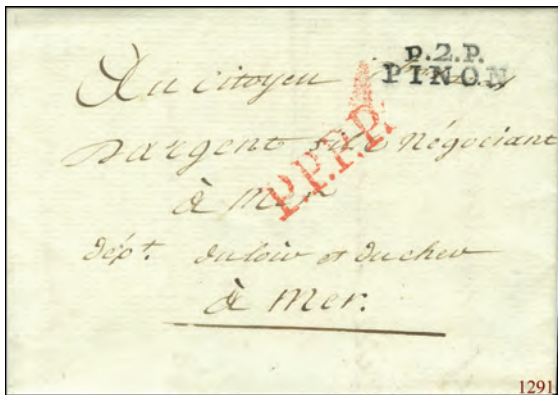 P.2.P.
PINON
Au citoyen
Dargent fils Négociant
P.P.P.P.
à Mer
dépt. du loir et du cher
à Mer.
1291